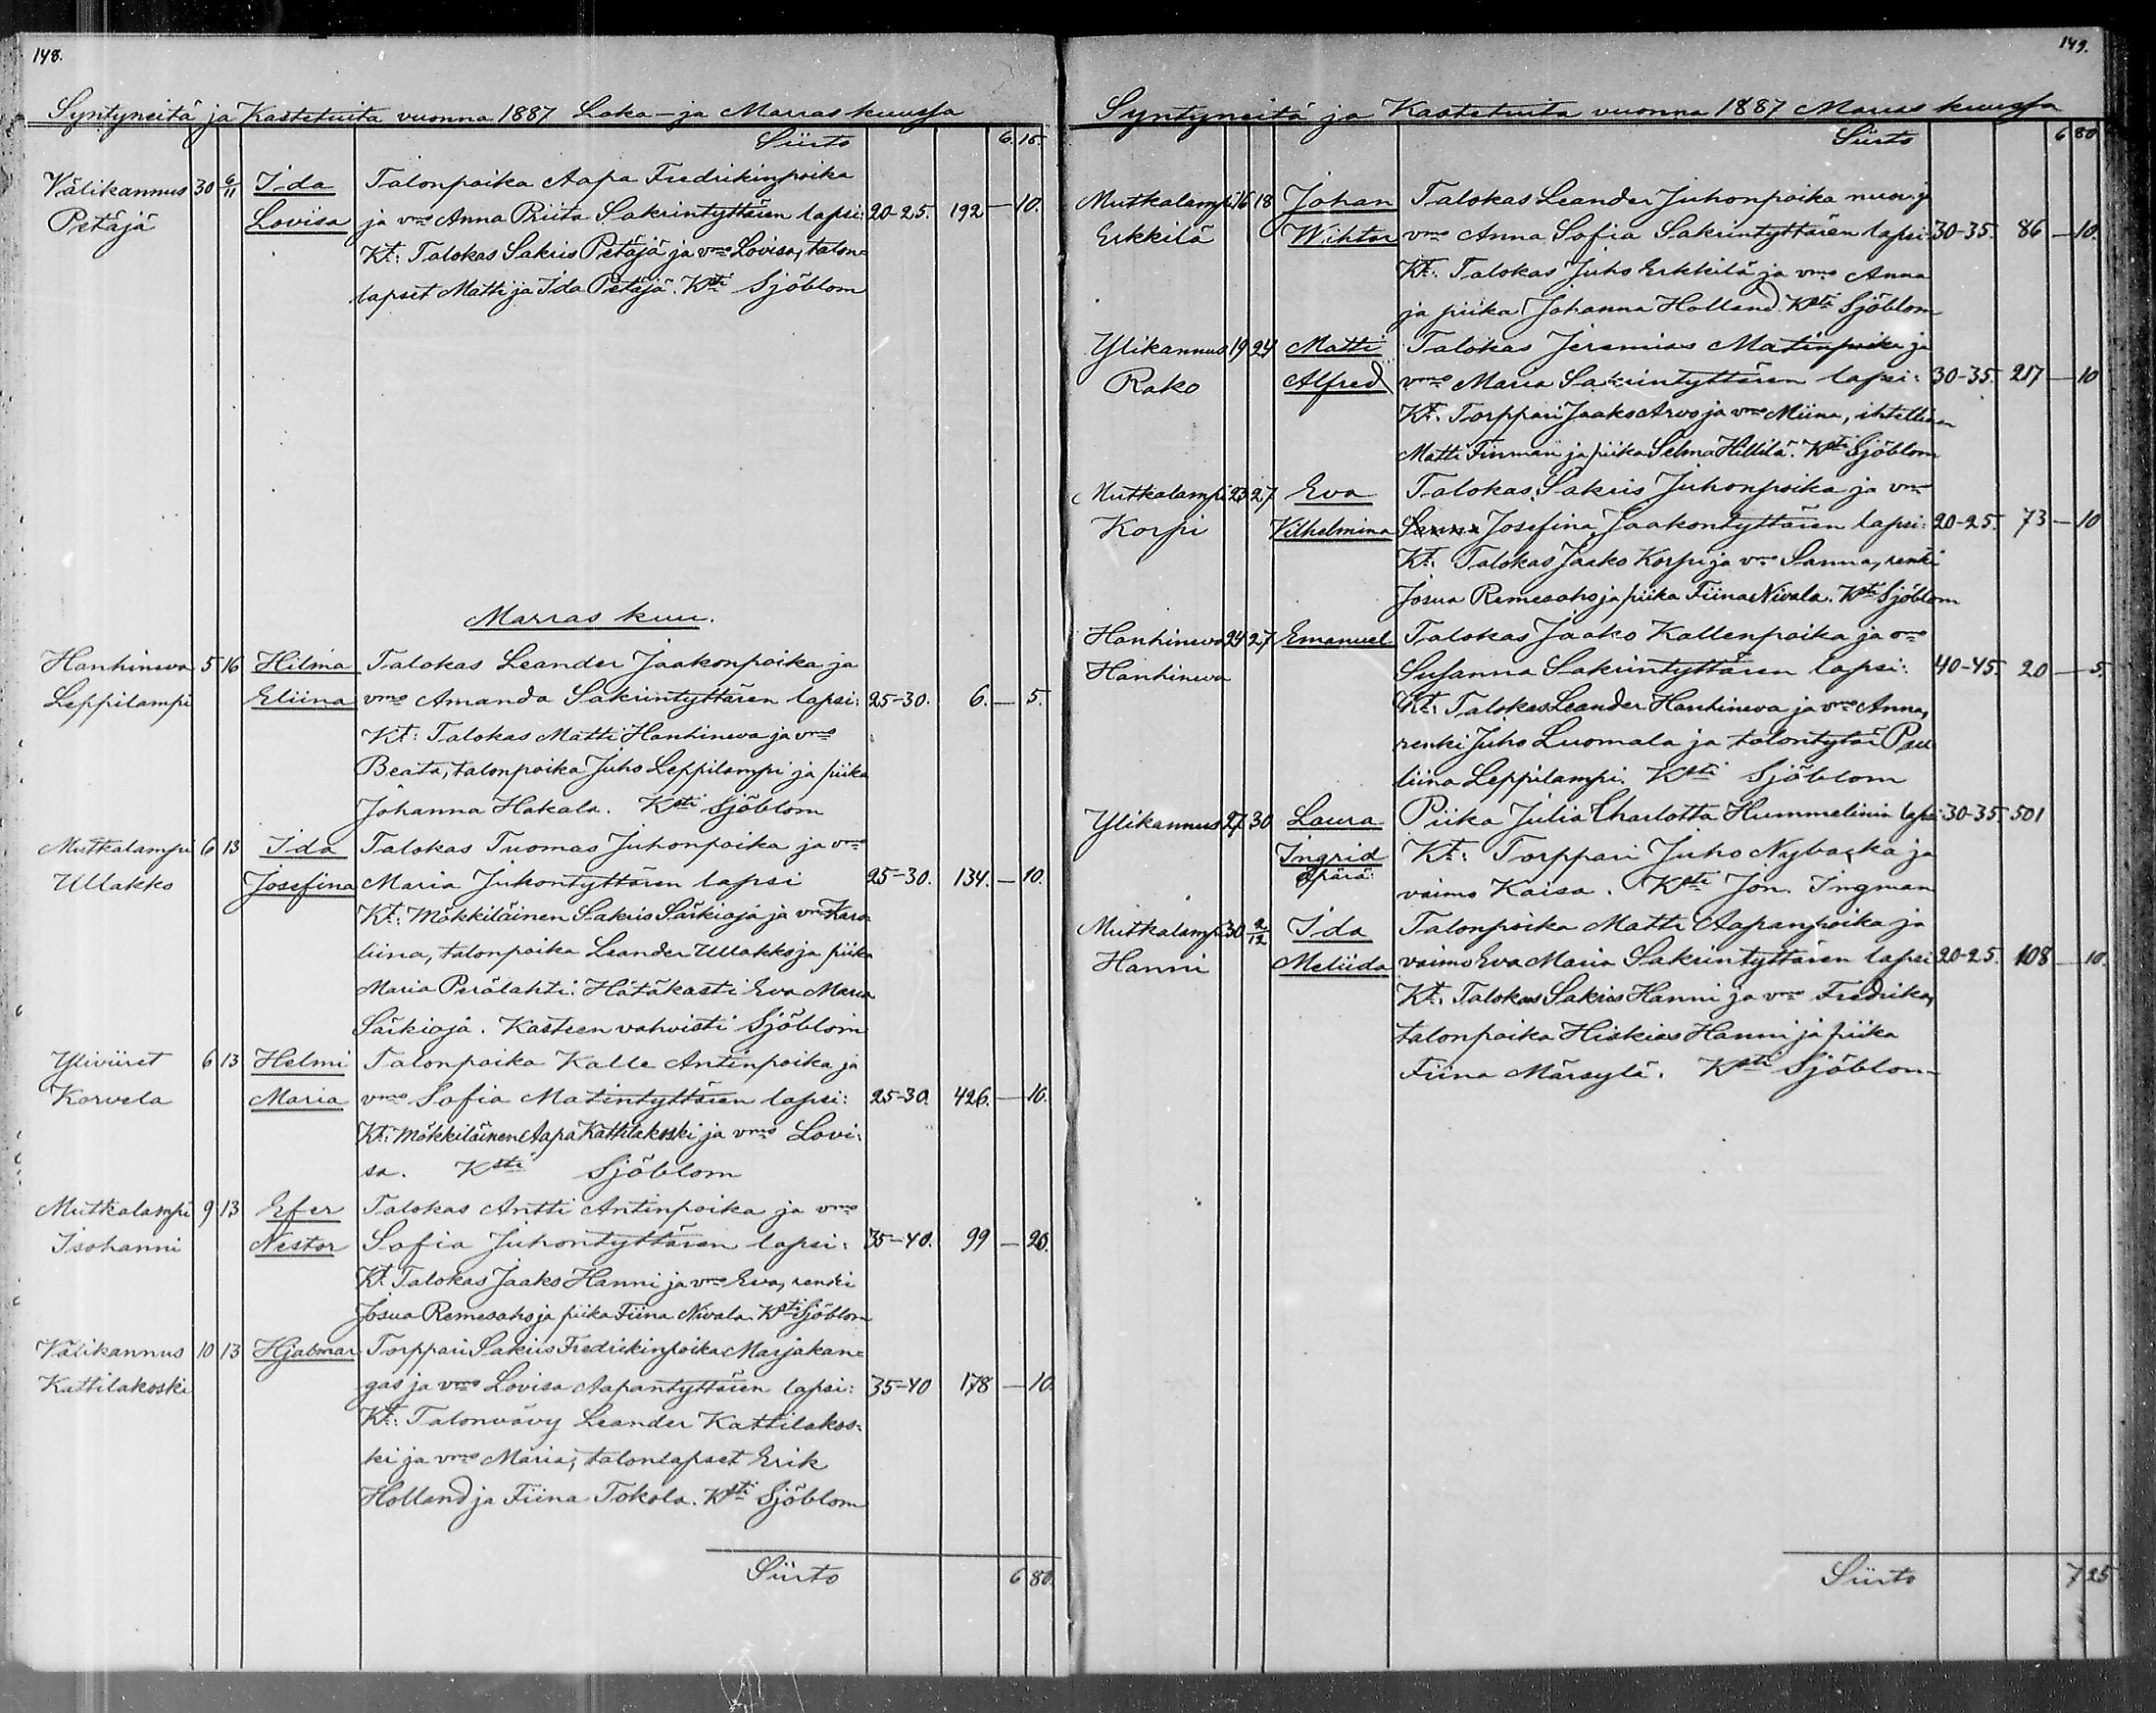 148.
Syntyneitä ja Kastetuita vuonna 1887 Loka- ja Marraskuussa
Siirto 6. 15.
Välikannus 30 6/11 Ida Talonpoika Aapa Fredrikinpoika
Petäjä Lovisa ja vmo Anna Priita Sakrintyttären lapsi: 20-25. 192 — 10.
Kt: Talokas Sakris Petäjä ja vmo Lovisa, talon=
lapset Matti ja Ida Petäjä. Ksti Sjöblom
Marras kuu.
Hanhineva 5 16 Hilma Talokas Leander Jaakonpoika ja
Leppilampi Eliina vmo Amanda Sakrintyttären lapsi: 25-30. 6. — 5.
Kt: Talokas Matti Hanhineva ja vmo
Beata, talonpoika Juho Leppilampi ja piika
Johanna Hakala. Ksti Sjöblom
Mutkalampi 6 13 Ida Talokas Tuomas Juhonpoika ja vmo
Ullakko Josefina Maria Juhontyttären lapsi 25-30. 134. — 10.
Kt: Mökkiläinen Sakris Särkioja ja vmo Karo=
liina, talonpoika Leander Ullakko ja piika
Maria Perälahti. Hätäkasti Eva Maria
Särkioja. Kasteen vahvisti Sjöblom
Yliviiret 6 13 Helmi Talonpoika Kalle Antinpoika ja
Korvela Maria vmo Sofia Matintyttären lapsi: 25-30. 426. — 10.
Kt: Mökkiläinen Aapa Kattilakoski ja vmo Lovi=
sa. Ksti Sjöblom
Mutkalampi 9 13 Efer Talokas Antti Antinpoika ja vmo
Isohanni Nestor Sofia Juhontyttären lapsi: 35-40. 99 — 20.
Kt. Talokas Jaako Hanni ja vmo Eva, renki
Josua Remesaho ja piika Fiina Nivala. Ksti Sjöblom
Välikannus 10 13 Hjalmar Torppari Sakris Fredrikinpoika Marjakan=
Kattilakoski gas ja vmo Lovisa Aapantyttären lapsi: 35-40 178 — 10.
Kt: Talonvävy Leander Kattilakos=
ki ja vmo Maria, talonlapset Erik
Holland ja Fiina Tokola. Ksti Sjöblom
Siirto 6 80.
149.
Syntyneitä ja Kastetuita vuonna 1887 Marras kuussa
Siirto 6 80
Mutkalampi 16 18 Johan Talokas Leander Juhonpoika ja
Erkkilä Wihtor vmo Anna Sofia Sakrintyttären lapsi 30-35. 86 — 10.
Kt: Talokas Juho Erkkilä ja vmo Anna
ja piika Johanna Holland. Ksti Sjöblom
Ylikannus 19 24 Matti Talokas Jeremias Matinpoika ja
Rako Alfred vmo Maria Sakrintyttären lapsi: 30-35. 217 — 10
Kt. Torppari Jaako Arvo ja vmo Miina, ihtellinen
Matti Finman ja piika Selma Hillilä. Ksti Sjöblom
Mutkalampi 23 27 Eva Talokas Sakris Juhonpoika ja vmo
Korpi Vilhelmina Josefina Jaakontyttären lapsi: 20-25. 73 — 10
Kt: Talokas Jaako Korpi ja vmo Sanna, renki
Josua Remesaho ja piika Fiina Nivala. Ksti Sjöblom
Hanhineva 24 27 Emanuel Talokas Jaako Kallenpoika ja vmo
Hanhineva Susanna Sakrintyttären lapsi: 40-45. 20 — 5.
Kt: Talokas Leander Hanhineva ja vmo Anna,
renki Juho Luomala ja talontytär Pau
liina Leppilampi. Ksti Sjöblom
Ylikannus 27 30 Laura Piika Julia Charlotta Hummelinin lapsi 30-35 501
Ingrid Kt: Torppari Juho Nybacka ja
äpärä: vaimo Kaisa. Ksti Jon. Ingman
Mutkalampi 30 2/12 Ida Talonpoika Matti Aapanpoika ja
Hanni Meliida vaimo Eva Maria Sakrintyttären lapsi 20-25. 108 — 10.
Kt. Talokas Sakris Hanni ja vmo Fredrika,
talonpoika Hiskias Hanni ja piika
Fiina Märsylä. Ksti Sjöblom
Siirto 7 25